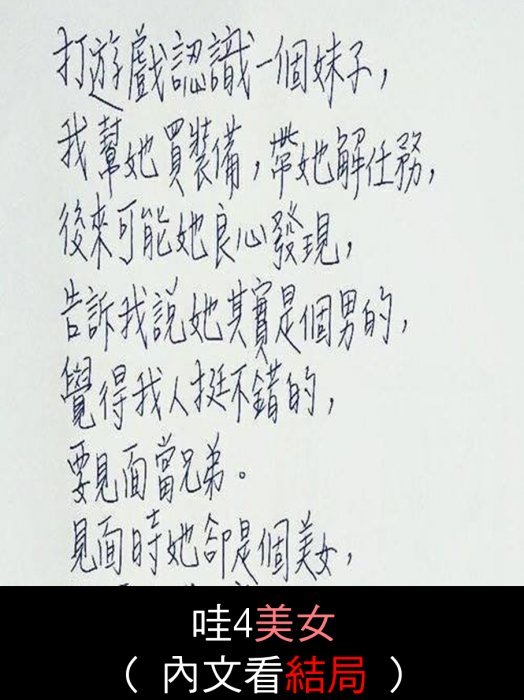 打遊戲認識一個妹子，
我幫她買裝備，帶她解任務，
後來可能她良心發現，
告訴我說她其實是個男的，
覺得我人挺不錯的，
要見面當兄弟。
見面時她卻是個美女，
哇4美女
（ 內文看結局 ）